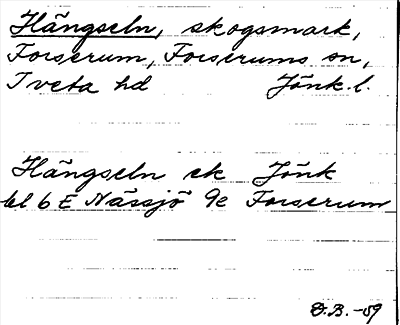 Hängseln, skogsmark,
Forserum, Forserums sn,
Tveta hd Jönk. l.
Hängseln ek Jönk
bl 6 E Nässjö 9e Forserum
O.B. -59